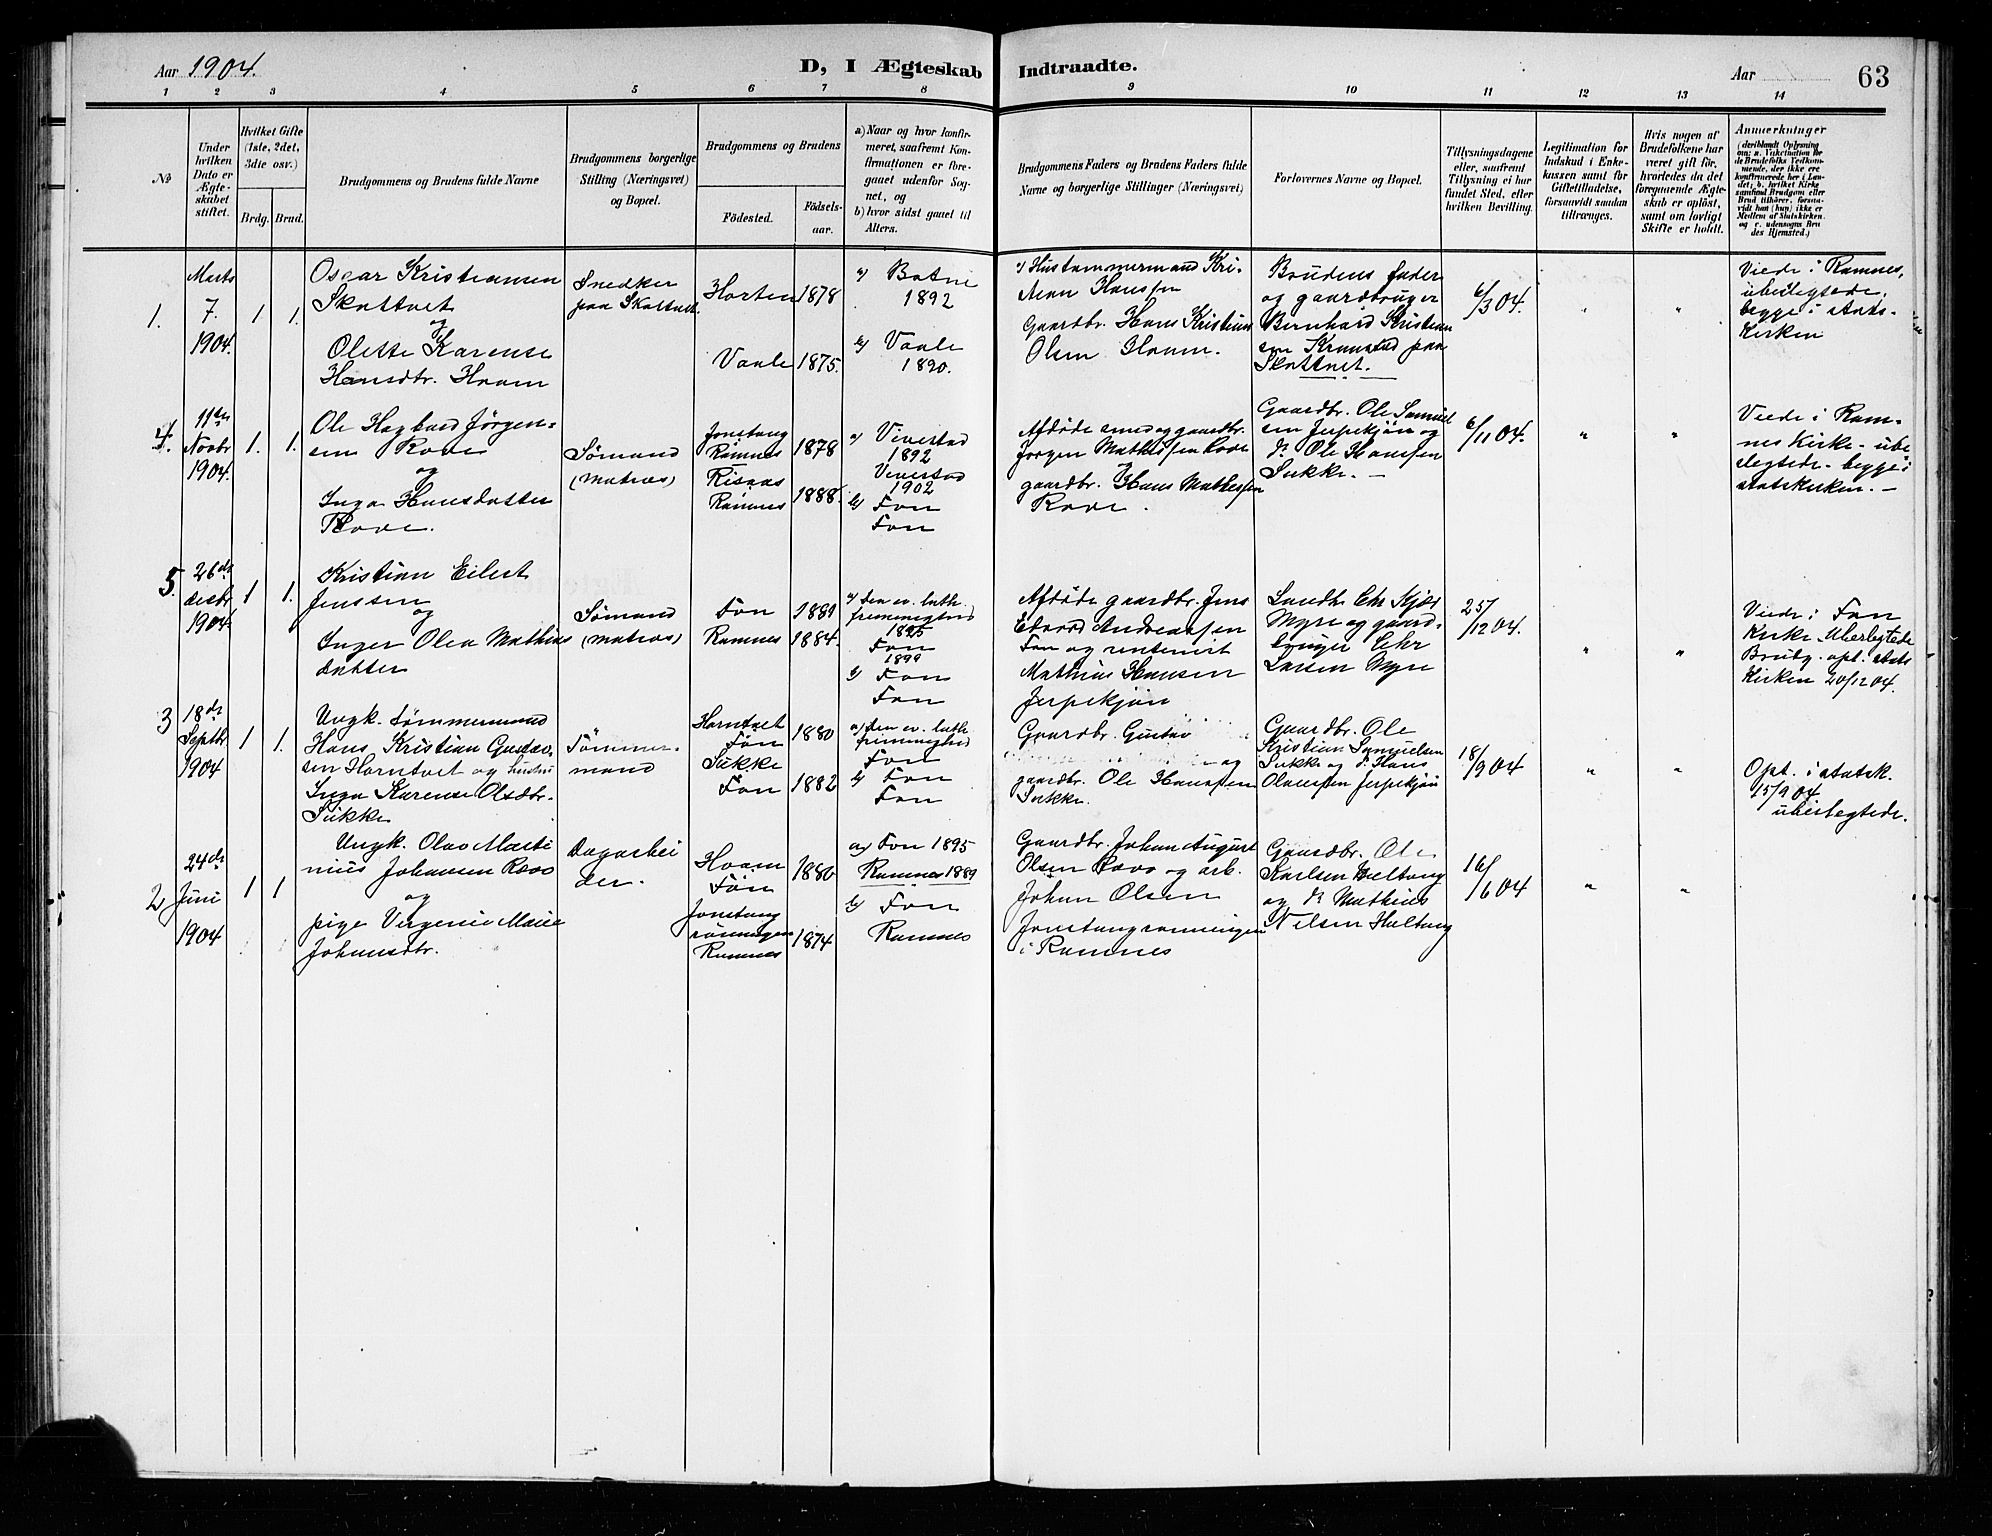 Aar 1904.
D, I Ægteskab Indtraadte.
Aar
63
1 2 3 4 5 6 7 8 9 10 11 12 13 14
№
Under hvilken Dato er Ægteskabet stiftet.
Hvilket Gifte (1ste, 2det, 3die osv.)
Brdg. Brud.
Brudgommens og Brudens fulde Navne
Brudgommens borgerlige Stilling (Næringsvei) og Bopæl.
Brudgommens og Brudens
Födested.
Födsels-aar.
a) Naar og hvor konfirmeret, saafremt Konfirmationen er foregaaet udenfor Sognet, og
b) hvor sidst gaaet til Alters.
Brudgommens Faders og Brudens Faders fulde Navne og borgerlige Stillinger (Næringsvei)
Forlovernes Navne og Bopæl.
Tillysningsdagene eller, saafremt Tillysning ei har fundet Sted, efter hvilken Bevilling.
Legitimation for Indskud i Enkekassen samt for Giftetilladelse, forsaavidt saadan tiltrænges.
Hvis nogen af Brudefolkene har været gift för, hvorledes da det foregaaende Ægteskab er oplöst, samt om lovligt Skifte er holdt.
Anmærkninger (deriblandt Oplysning om: a. Vakcination for de Brudefolks Vedkommende, der ikke ere konfirmerede her i Landet; b. hvilket Kirkesamfund Brudgom eller Brud tilhörer, forsaavidt han (hun) ikke er Medlem af Statskirken, og c. udensogns Brudes Hjemsted.)
1.
Marts
7.
1904.
1 1.
Oscar Kristiansen
Skattvet
og
Olette Karense
Hansdtr. Hvam
Snedker
paa Skattvet.
Horten 1878
Vaale 1875.
a) Botne
1892
b) Vaale
1890.
Hustømmermand Kri-
stian Hanssen
Gaardbr. Hans Kristian
Olsen Hvam.
Brudens fader
og gaardbruger
Bernhard Kristian
sen Krunstad paa
Skattvet.
6/3 04.
" "
Viede i Ramnes,
ubeslegtede,
begge i stats-
kirken
4.
11te
Novbr
1904.
1. 1.
Ole Hagbard Jørgen-
sen Rove
og
Inga Hansdatter
Rove.
Sømand
(matros)
Jonstang
Ramnes 1878
Risaas
Ramnes 1888.
a) Vivestad
1892
Vivestad
1902
b) Fon
Fon
Afdøde smed og gaardbr.
Jørgen Mathissen Rove
og
gaardbr. Hans Mathissen
Rove.
Gaardbr. Ole Samuel
sen Jerpekjøn og
do Ole Hanssen
Sukke.
6/11 04.
" "
Viede i Ram-
nes Kirke - ube
slegtede - begge i
statskirken.
5.
26de
decbr
1904.
1 1.
Kristian Eilert
Jenssen
og
Inger Olea Mathias
datter
Sømand
(matros)
Fon 1881
Ramnes 1884.
a) den ev. luth.
frimenighed
1895
Fon
1899
b) Fon
Fon
Afdøde gaardbr. Jens
Edvard Andreassen
Fon og rentenist
Mathias Hansen
Jerpekjøn
Landh. Chr Kjær
Myre og gaard-
bruger Chr
Larsen Myre
25/12 04.
" "
Viede i Fon
Kirke. Ubeslegtede
Brudg. opt. i stats
Kirken 20/12 04.
3
18de
Septbr.
1904
1 1.
Ungk. tømmermand
Hans Kristian Gustav-
sen Horntvet og
Inga Karense Olsdtr.
Sukke
Tømmer-
mand
Horntvet
Fon 1880
Sukke
Fon 1882
a) den ev. luth.
frimenighed
Fon
b) Fon
Fon
Gaardbr. Gustav
og
gaardbr. Ole Hanssen
Sukke.
Gaardbr. Ole
Kristian Samuelsen
Sukke og do Hans
Olaussen Jerpekjøn
18/9 04
" "
Opt. i statsk.
15/9 04
ubeslegtede.
2
24de
Juni
1904
1 1
Ungk. Olav Marti
nius Johansen Rove
og
pige Virgenie Marie
Johansdtr.
Dagarbei
der.
Hvam
Fon 1880
Jonstang
rønningen
Ramnes 1874
a) Fon 1895
Ramnes 1889
b) Fon
Ramnes
Gaardbr. Johan August
Olsen Rove og arb.
Johan Olsen
Jonstangrønningen
i Ramnes
Gaardbr. Ole
Karlsen Hultang
og do Mathius
Nilsen Hultang
16/6 04
" "